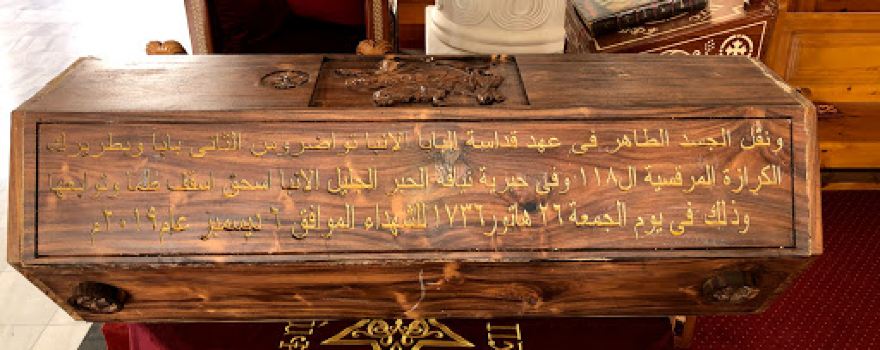 ونقل الجسد الطاهر فى عهد قداسة البابا الانبا تواضروس الثانى بابا وبطريرك
الكرازة المرقسية ال١١٨ وفى حبرية نيافة الحبر الجليل الانبا اسحق اسقف طما وتوابعها
وذلك فى يوم الجمعة ٢٦ هاتور ١٧٣٦ للشهداء الموافق ٦ ديسمبر عام ٢٠١٩م